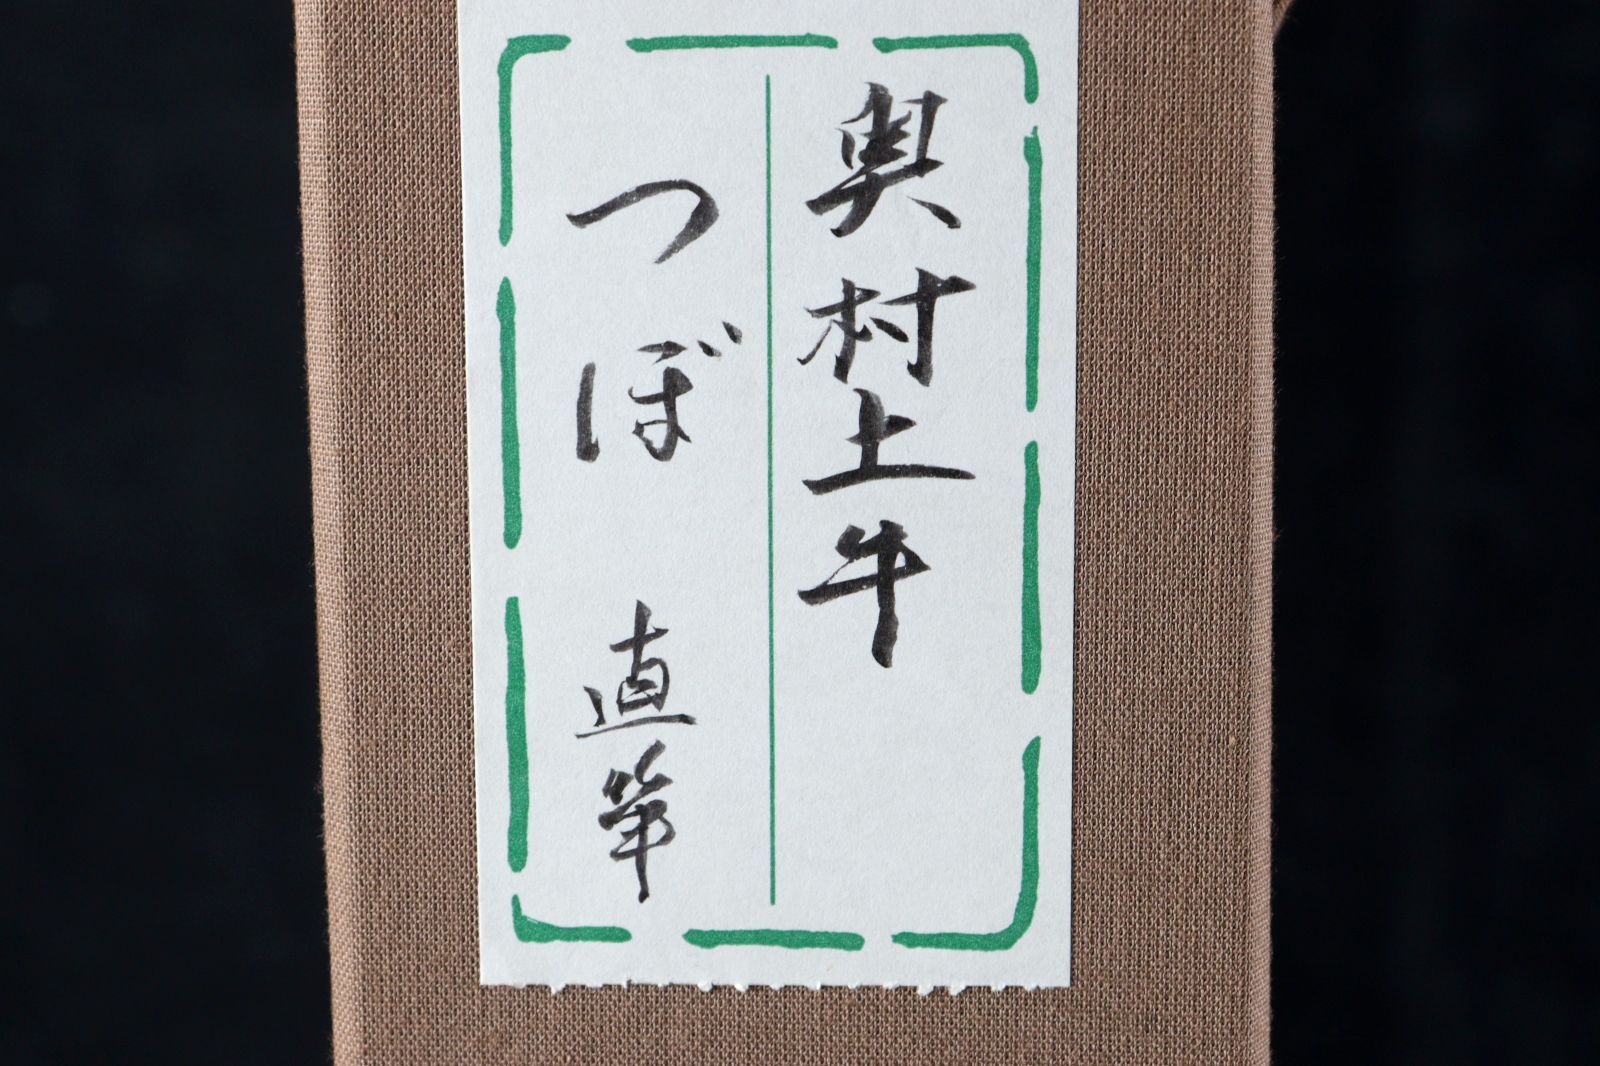 奥村土牛
つぼ 直筆